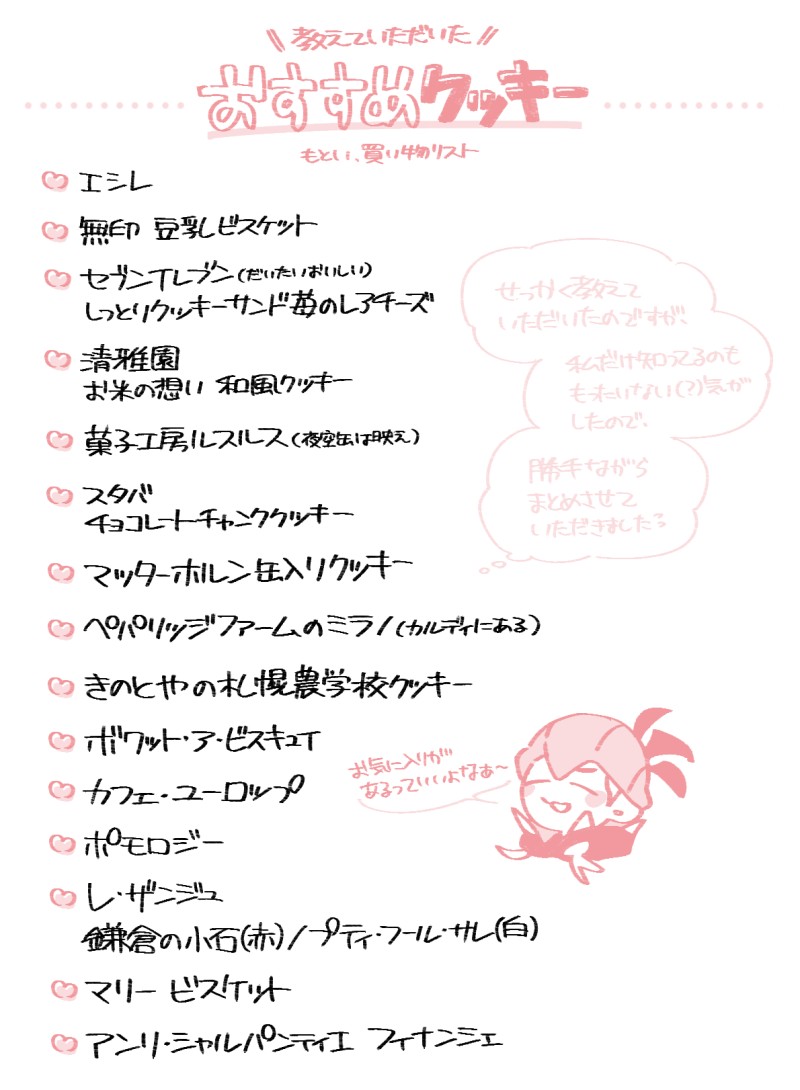 \\ 教えていただいた //
おすすめクッキー
もとい、買い物リスト
エシレ
無印 豆乳ビスケット
セブンイレブン(だいたいおいしい)
しっとりクッキーサンド苺のレアチーズ
清雅園
お米の想い 和風クッキー
菓子工房ルスルス(夜空缶は映え)
スタバ
チョコレートチャンククッキー
マッターホルン缶入りクッキー
ペパリッジファームのミラノ(カルディにある)
きのとやの札幌農学校クッキー
ボワット・ア・ビスキュイ
カフェ・ユーロップ
ポモロジー
レ・ザンジュ
鎌倉の小石(赤)/プティ・フール・サレ(白)
マリー ビスケット
アンリ・シャルパンティエ フィナンシェ
せっかく教えて
いただいたのですが、
私だけ知ってるのも
もったいない(?)気が
したので、
勝手ながら
まとめさせて
いただきました〜
お気に入りが
あるっていいよなぁ〜